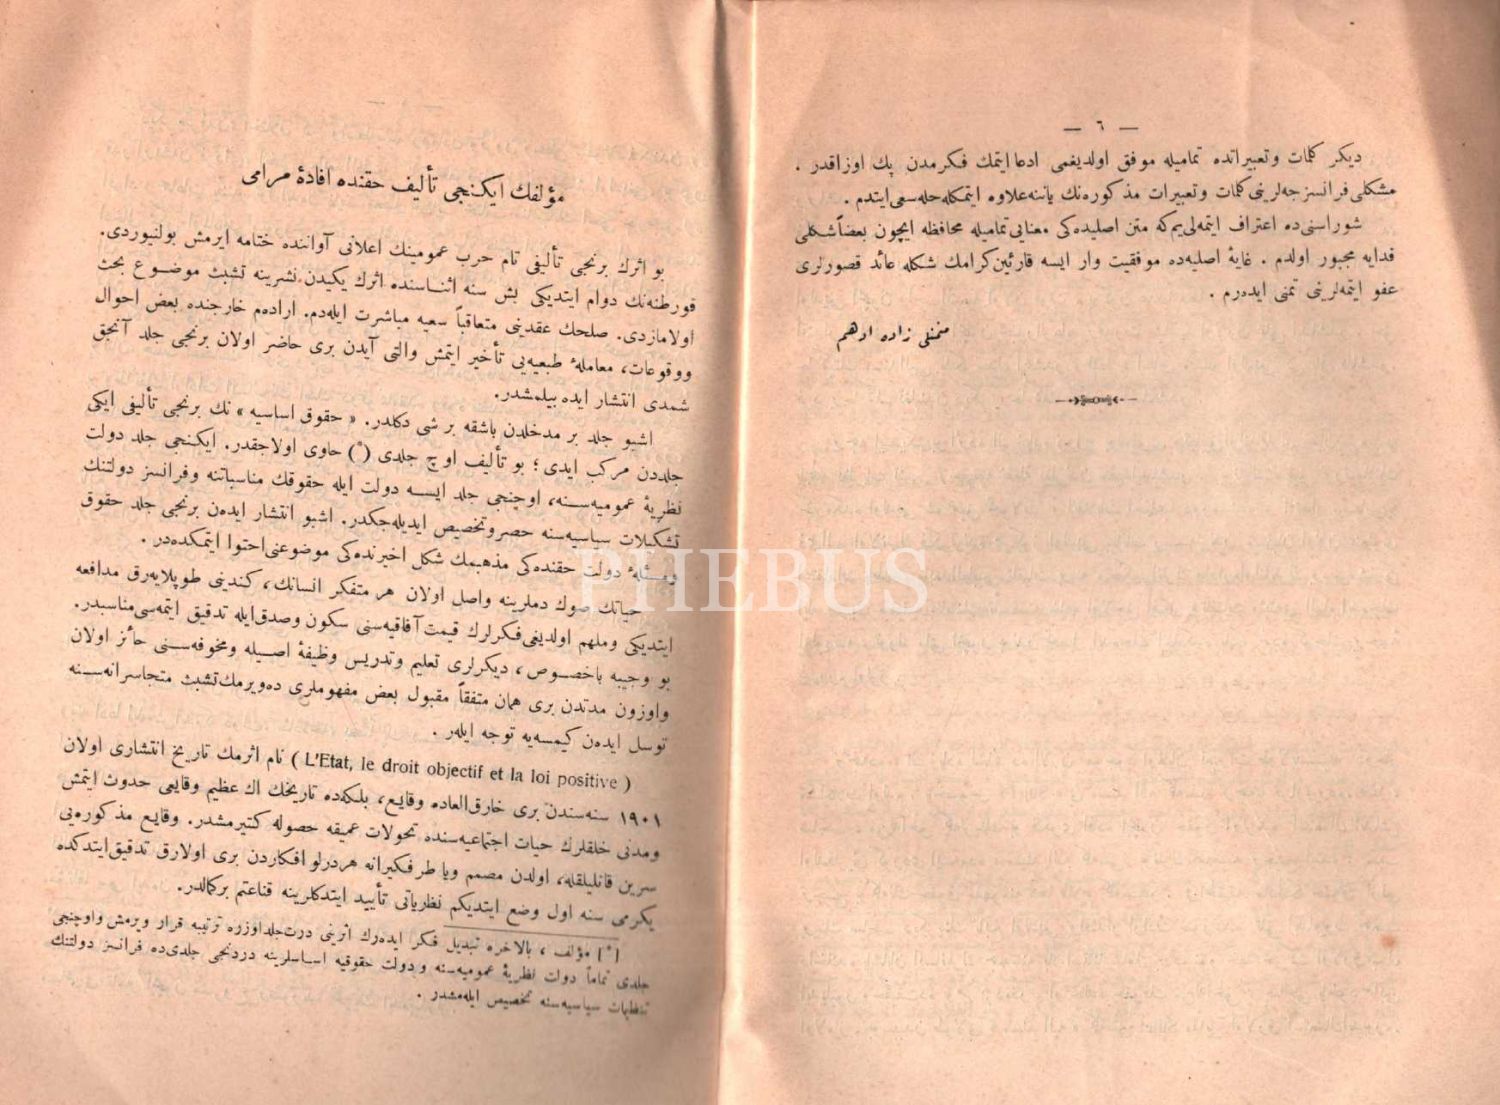 — ٦ —
ديكر كلمات وتعبيراتده تماميله موفق اولديغمى ادعا ايتمك فكرمدن پك اوزاقدر .
مشكلى فرانسزجه‌لرينى كلمات وتعبيرات مذكوره‌نك ياننه‌علاوه ايتمكله‌حله‌سعى‌ايتدم .
شوراسنى‌ده اعتراف ايتمه‌لى‌يم‌كه متن اصليده‌كى معنايى‌تماميله محافظه ايچون بعضاً‌شكلى
فدايه مجبور اولدم . غاية اصليه‌ده موفقيت وار ايسه قارئين‌كرامك شكله عائد قصورلرى
عفو ايتمه‌لرينى تمنى ايده‌رم .
زاده ادهم
مؤلفك ايكنجى تأليف حقنده افادۀ مرامى
بو اثرك برنجى تأليفى تام حرب عمومينك اعلانى آواننده ختامه ايرمش بولنيوردى.
قورطنه‌نك دوام ايتديكى بش سنه اثناسنده اثرك يكيدن نشرينه تشبث موضوع بحث
اولامازدى. صلحك عقدينى متعاقباً سعيه مباشرت ايله‌دم. اراده‌م خارجنده بعض احوال
ووقوعات، معاملۀ طبعيه‌يى تأخير ايتمش والتى آيدن برى حاضر اولان برنجى جلد آنجق
شمدى انتشار ايده بيلمشدر.
اشبو جلد بر مدخلدن باشقه بر شى دكلدر. « حقوق اساسيه » نك برنجى تأليفى ايكى
جلددن مركب ايدى ؛ بو تأليف اوچ جلدى (*) حاوى اولاجقدر. ايكنجى جلد دولت
نظريۀ عموميه‌سنه، اوچنجى جلد ايسه دولت ايله حقوقك مناسباتنه وفرانسز دولتنك
تشكيلات سياسيه‌سنه حصروتخصيص ايديله‌جكدر. اشبو انتشار ايده‌ن برنجى جلد حقوق
ومسئلۀ دولت حقنده‌كى مذهبمك شكل اخيرنده‌كى موضوعنى‌احتوا ايتمكده‌در .
حياتك صوك دملرينه واصل اولان هر متفكر انسانك، كندينى طوپلايه‌رق مدافعه
ايتديكى وملهم اولديغى‌فكرلرك قيمت آفاقيه‌سنى سكون وصدق‌ايله تدقيق ايتمه‌سى‌مناسبدر.
بو وجيبه باخصوص، ديكرلرى تعليم وتدريس وظيفۀ اصيله ومخوفه‌سنى حائز اولان
واوزون مدتدن برى همان متفقاً مقبول بعض مفهوملرى ده‌ويرمك‌تشبث متجاسرانه‌سنه
توسل ايده‌ن كيمسه‌يه توجه ايلر .
( L'Etat, le droit objectif et la loi positive ) نام اثرمك تاريخ انتشارى اولان
١٩٠١ سنه‌سندن برى خارق‌العاده وقايع، بلكه‌ده تاريخك اك عظيم وقايعى حدوث ايتمش
ومدنى خلقلرك حيات اجتماعيه‌سنده تحولات عميقه حصوله كتيرمشدر. وقايع مذكوره‌يى
سرين قانليلقله، اولدن مصمم ويا طرفكيرانه هردرلو افكاردن برى اولارق تدقيق‌ايتدكده
يكرمى سنه اول وضع ايتديكم نظرياتى تأييد ايتدكلرينه قناعتم بركمالدر.
[*] مؤلف ، بالاخره تبديل فكر ايده‌رك اثرينى درت‌جلداوزره ترتيبه قرار ويرمش واوچنجى
جلدى تماماً دولت نظريۀ عموميه‌سنه و دولت حقوقيه اساسلرينه دردنجى جلدى‌ده فرانسز دولتنك
سياسيه‌سنه تخصيص ايله‌مشدر .
PHEBUS